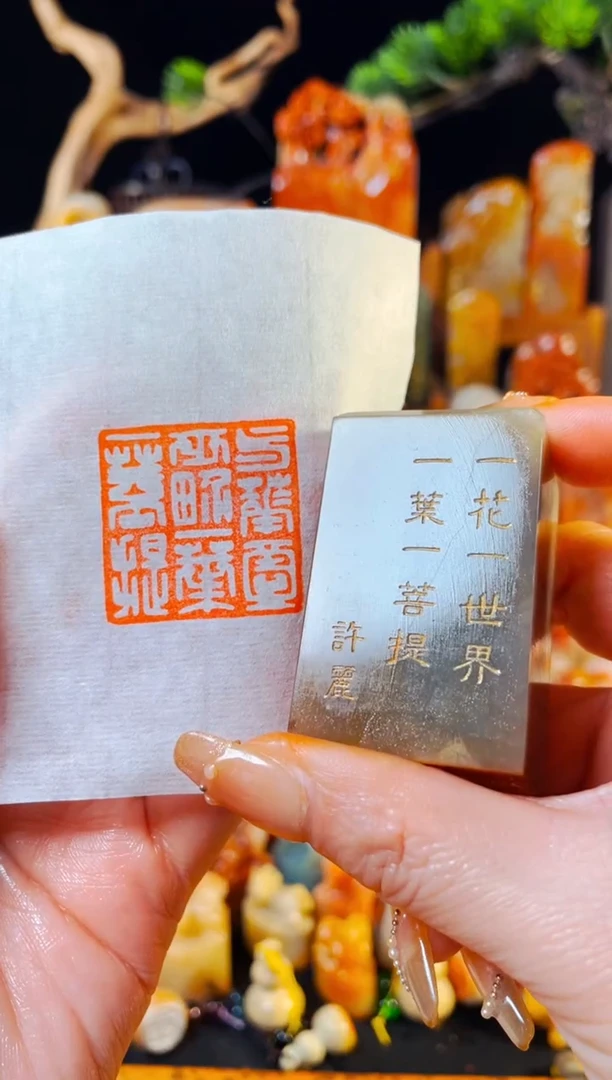 華壹
世界一葉
一菩提
一花一世界
一葉一菩提
許麗